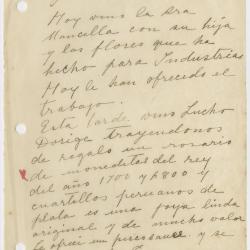 Hoy vino la sra
Mancilla con su hija
y las flores que ha
hecho para Industrias
Hoy le han ofrecido el
trabajo.
Esta tarde vino Lucho
Dorige trayendonos
de regalo un rosario
de moneditas del rey
del año 1700 y 1800 y
cuartillos peruanos de
plata es una joya linda
original y de mucho valor
le ofreci un y se